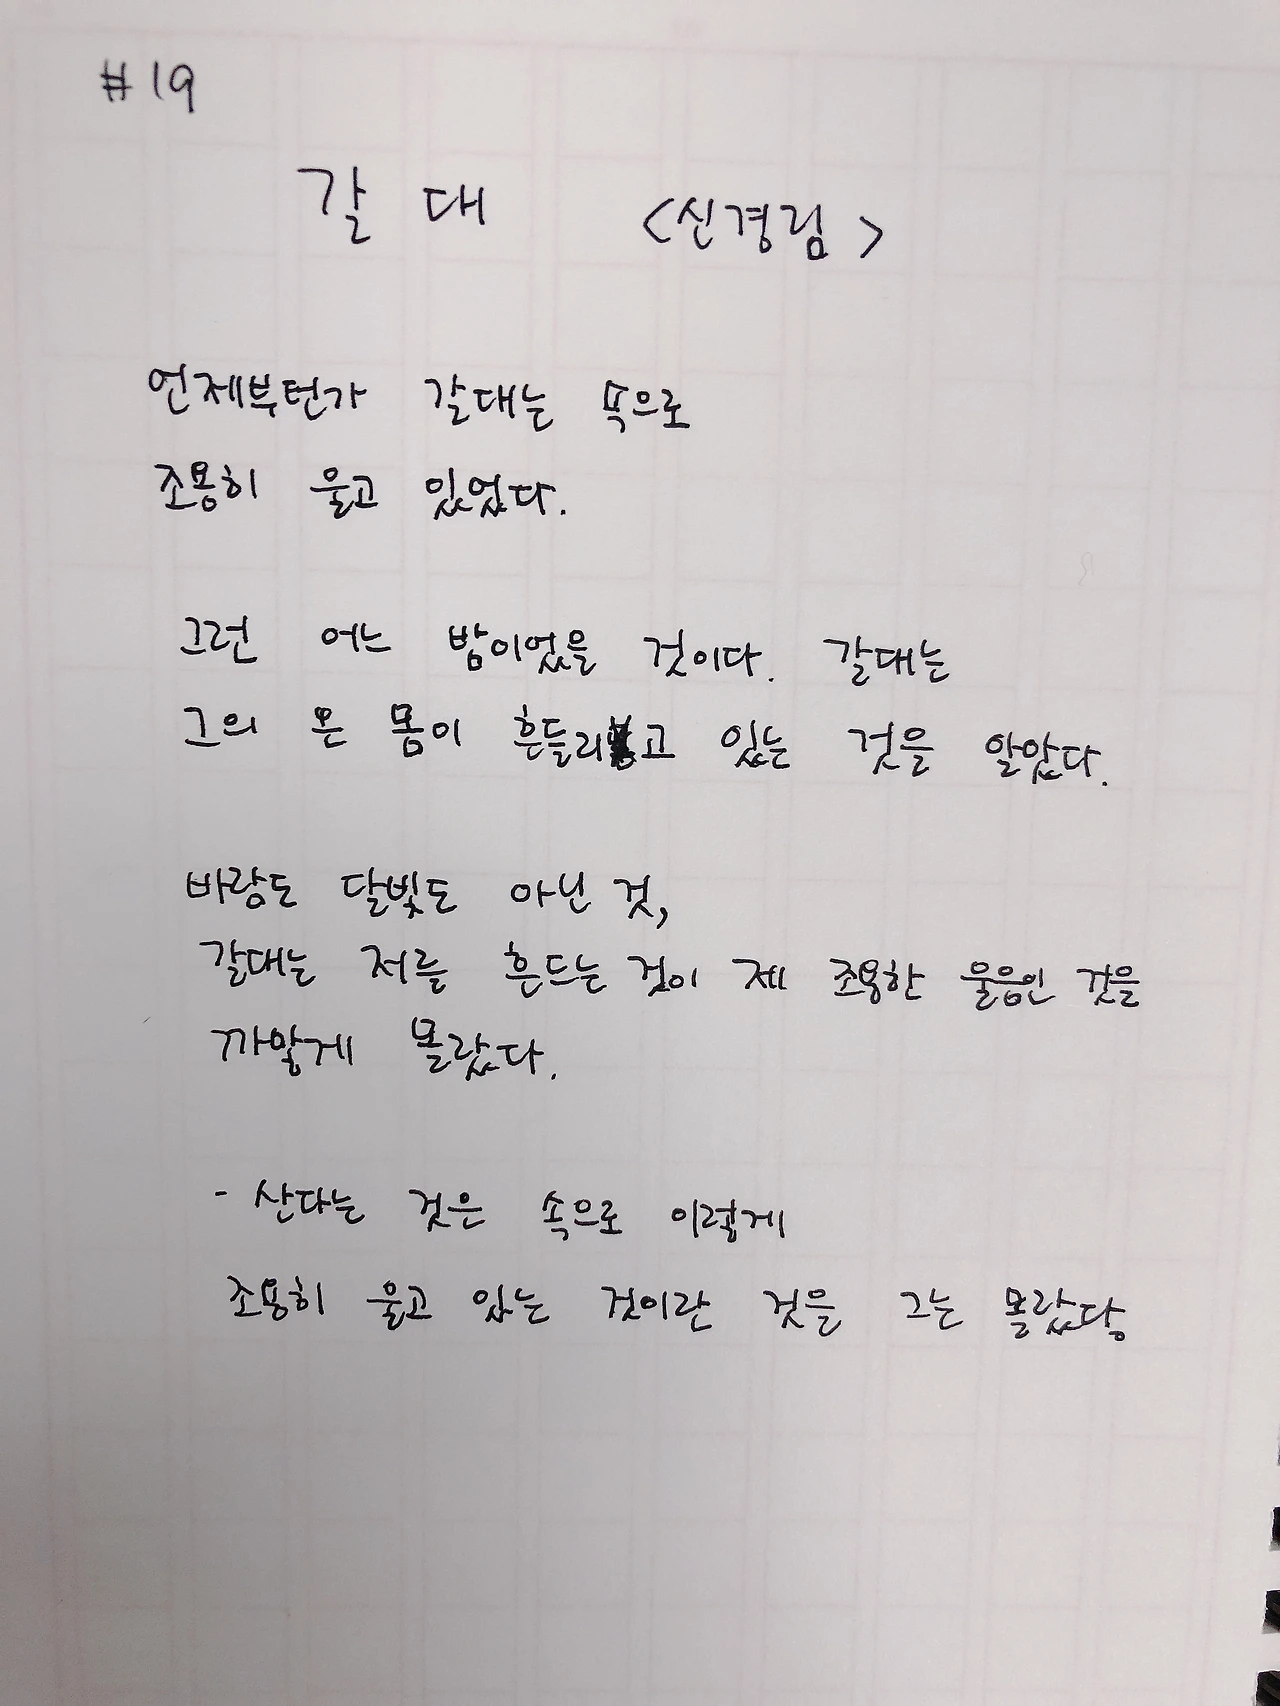 #19
갈 대 <신경림>
언제부턴가 갈대는 속으로
조용히 울고 있었다.
그런 어느 밤이었을 것이다. 갈대는
그의 온 몸이 흔들리고 있는 것을 알았다.
바람도 달빛도 아닌 것,
갈대는 저를 흔드는 것이 제 조용한 울음인 것을
까맣게 몰랐다.
- 산다는 것은 속으로 이렇게
조용히 울고 있는 것이란 것을 그는 몰랐다.